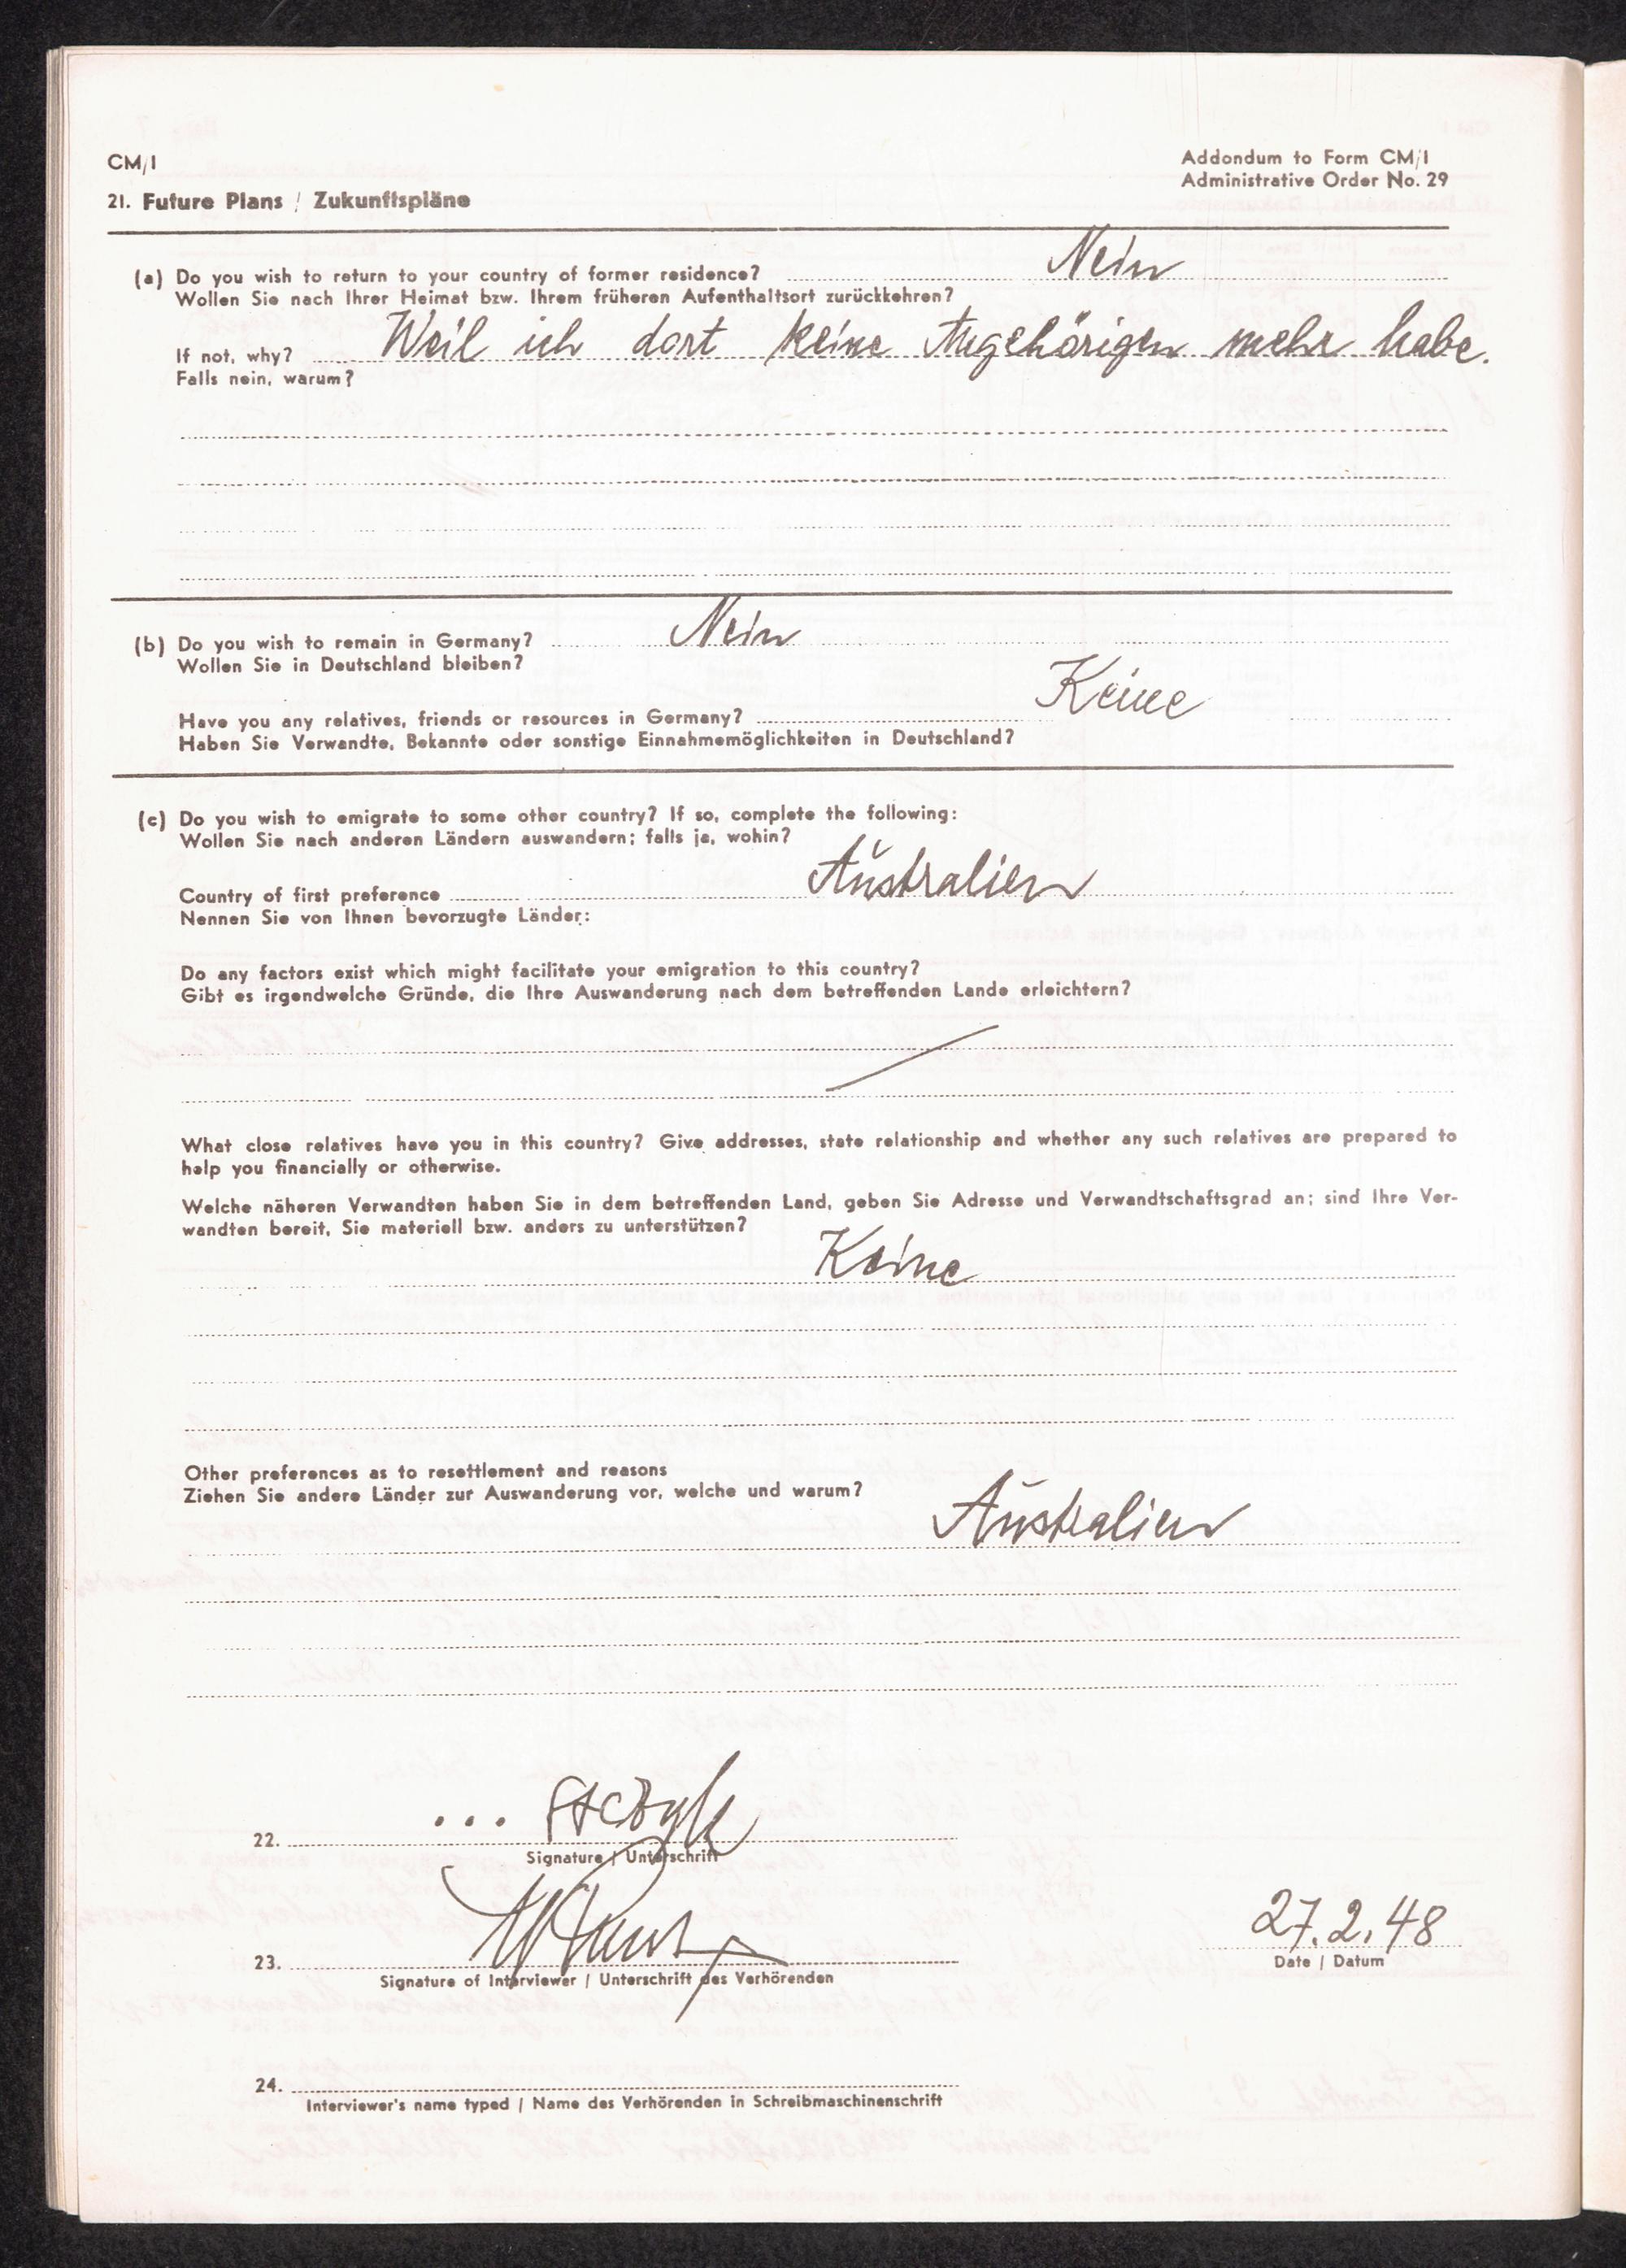 CM/1
Addondum to Form CM/1
Administrative Order No. 29
21. Future Plans / Zukunftspläne
(a) Do you wish to return to your country of former residence? Nein
Wollen Sie nach Ihrer Heimat bzw. Ihrem früheren Aufenthaltsort zurückkehren?
If not, why? Weil ich dort keine Angehörigen mehr habe.
Falls nein, warum?
(b) Do you wish to remain in Germany? Nein
Wollen Sie in Deutschland bleiben?
Have you any relatives, friends or resources in Germany? Keine
Haben Sie Verwandte, Bekannte oder sonstige Einnahmemöglichkeiten in Deutschland?
(c) Do you wish to emigrate to some other country? If so, complete the following:
Wollen Sie nach anderen Ländern auswandern; falls ja, wohin?
Country of first preference Australien
Nennen Sie von Ihnen bevorzugte Länder:
Do any factors exist which might facilitate your emigration to this country?
Gibt es irgendwelche Gründe, die Ihre Auswanderung nach dem betreffenden Lande erleichtern?
What close relatives have you in this country? Give addresses, state relationship and whether any such relatives are prepared to
help you financially or otherwise.
Welche näheren Verwandten haben Sie in dem betreffenden Land, geben Sie Adresse und Verwandtschaftsgrad an; sind Ihre Ver-
wandten bereit, Sie materiell bzw. anders zu unterstützen?
Keine
Other preferences as to resettlement and reasons
Ziehen Sie andere Länder zur Auswanderung vor, welche und warum?
Australien
22.
Signature / Unterschrift
23.
27.2.48
Signature of Interviewer / Unterschrift des Verhörenden
Date / Datum
24.
Interviewer's name typed / Name des Verhörenden in Schreibmaschinenschrift